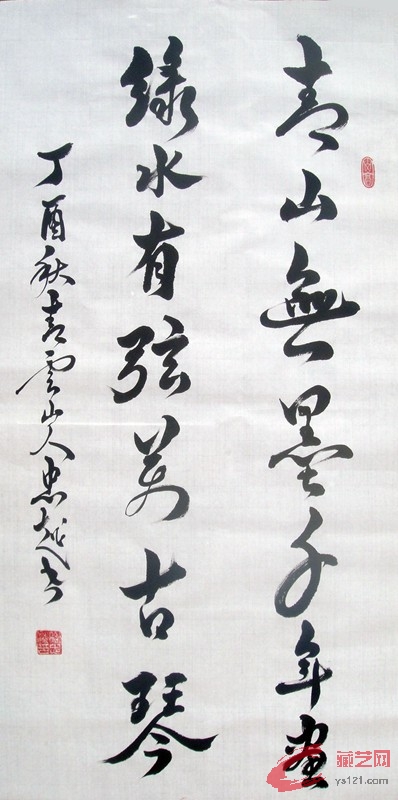 青山無墨千年畫
緑水有弦萬古琴
丁酉秋青雲山人忠越书
藏艺网
ys121.com